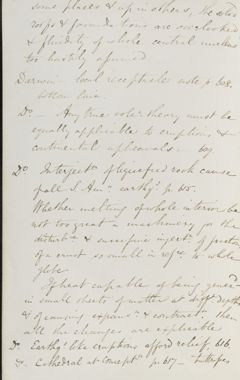 some places & up in others, the steep
& fluidity of whole central nucleus
too hastily assumed
Darwin local receptacles note p 608.
bottom line
Do — Any true volc. theory must be
equally applicable to eruptions &
continental upheavals — 609
Do Interject. of liquefied rock cause
of all S. Am. earthqs p. 615.
Whether melting of whole interior be
not too great a machinery for the
disturb. & successive inject. of portions
of a crust so small in refce to whole
globe
If heat capable of being gener
in small sheets of matter at diff. depths
& of causing expans. & contract. then
all the changes are explicable
Do Earthqs like eruptions afford relief 616
Do Cathedral at Concept. p. 617